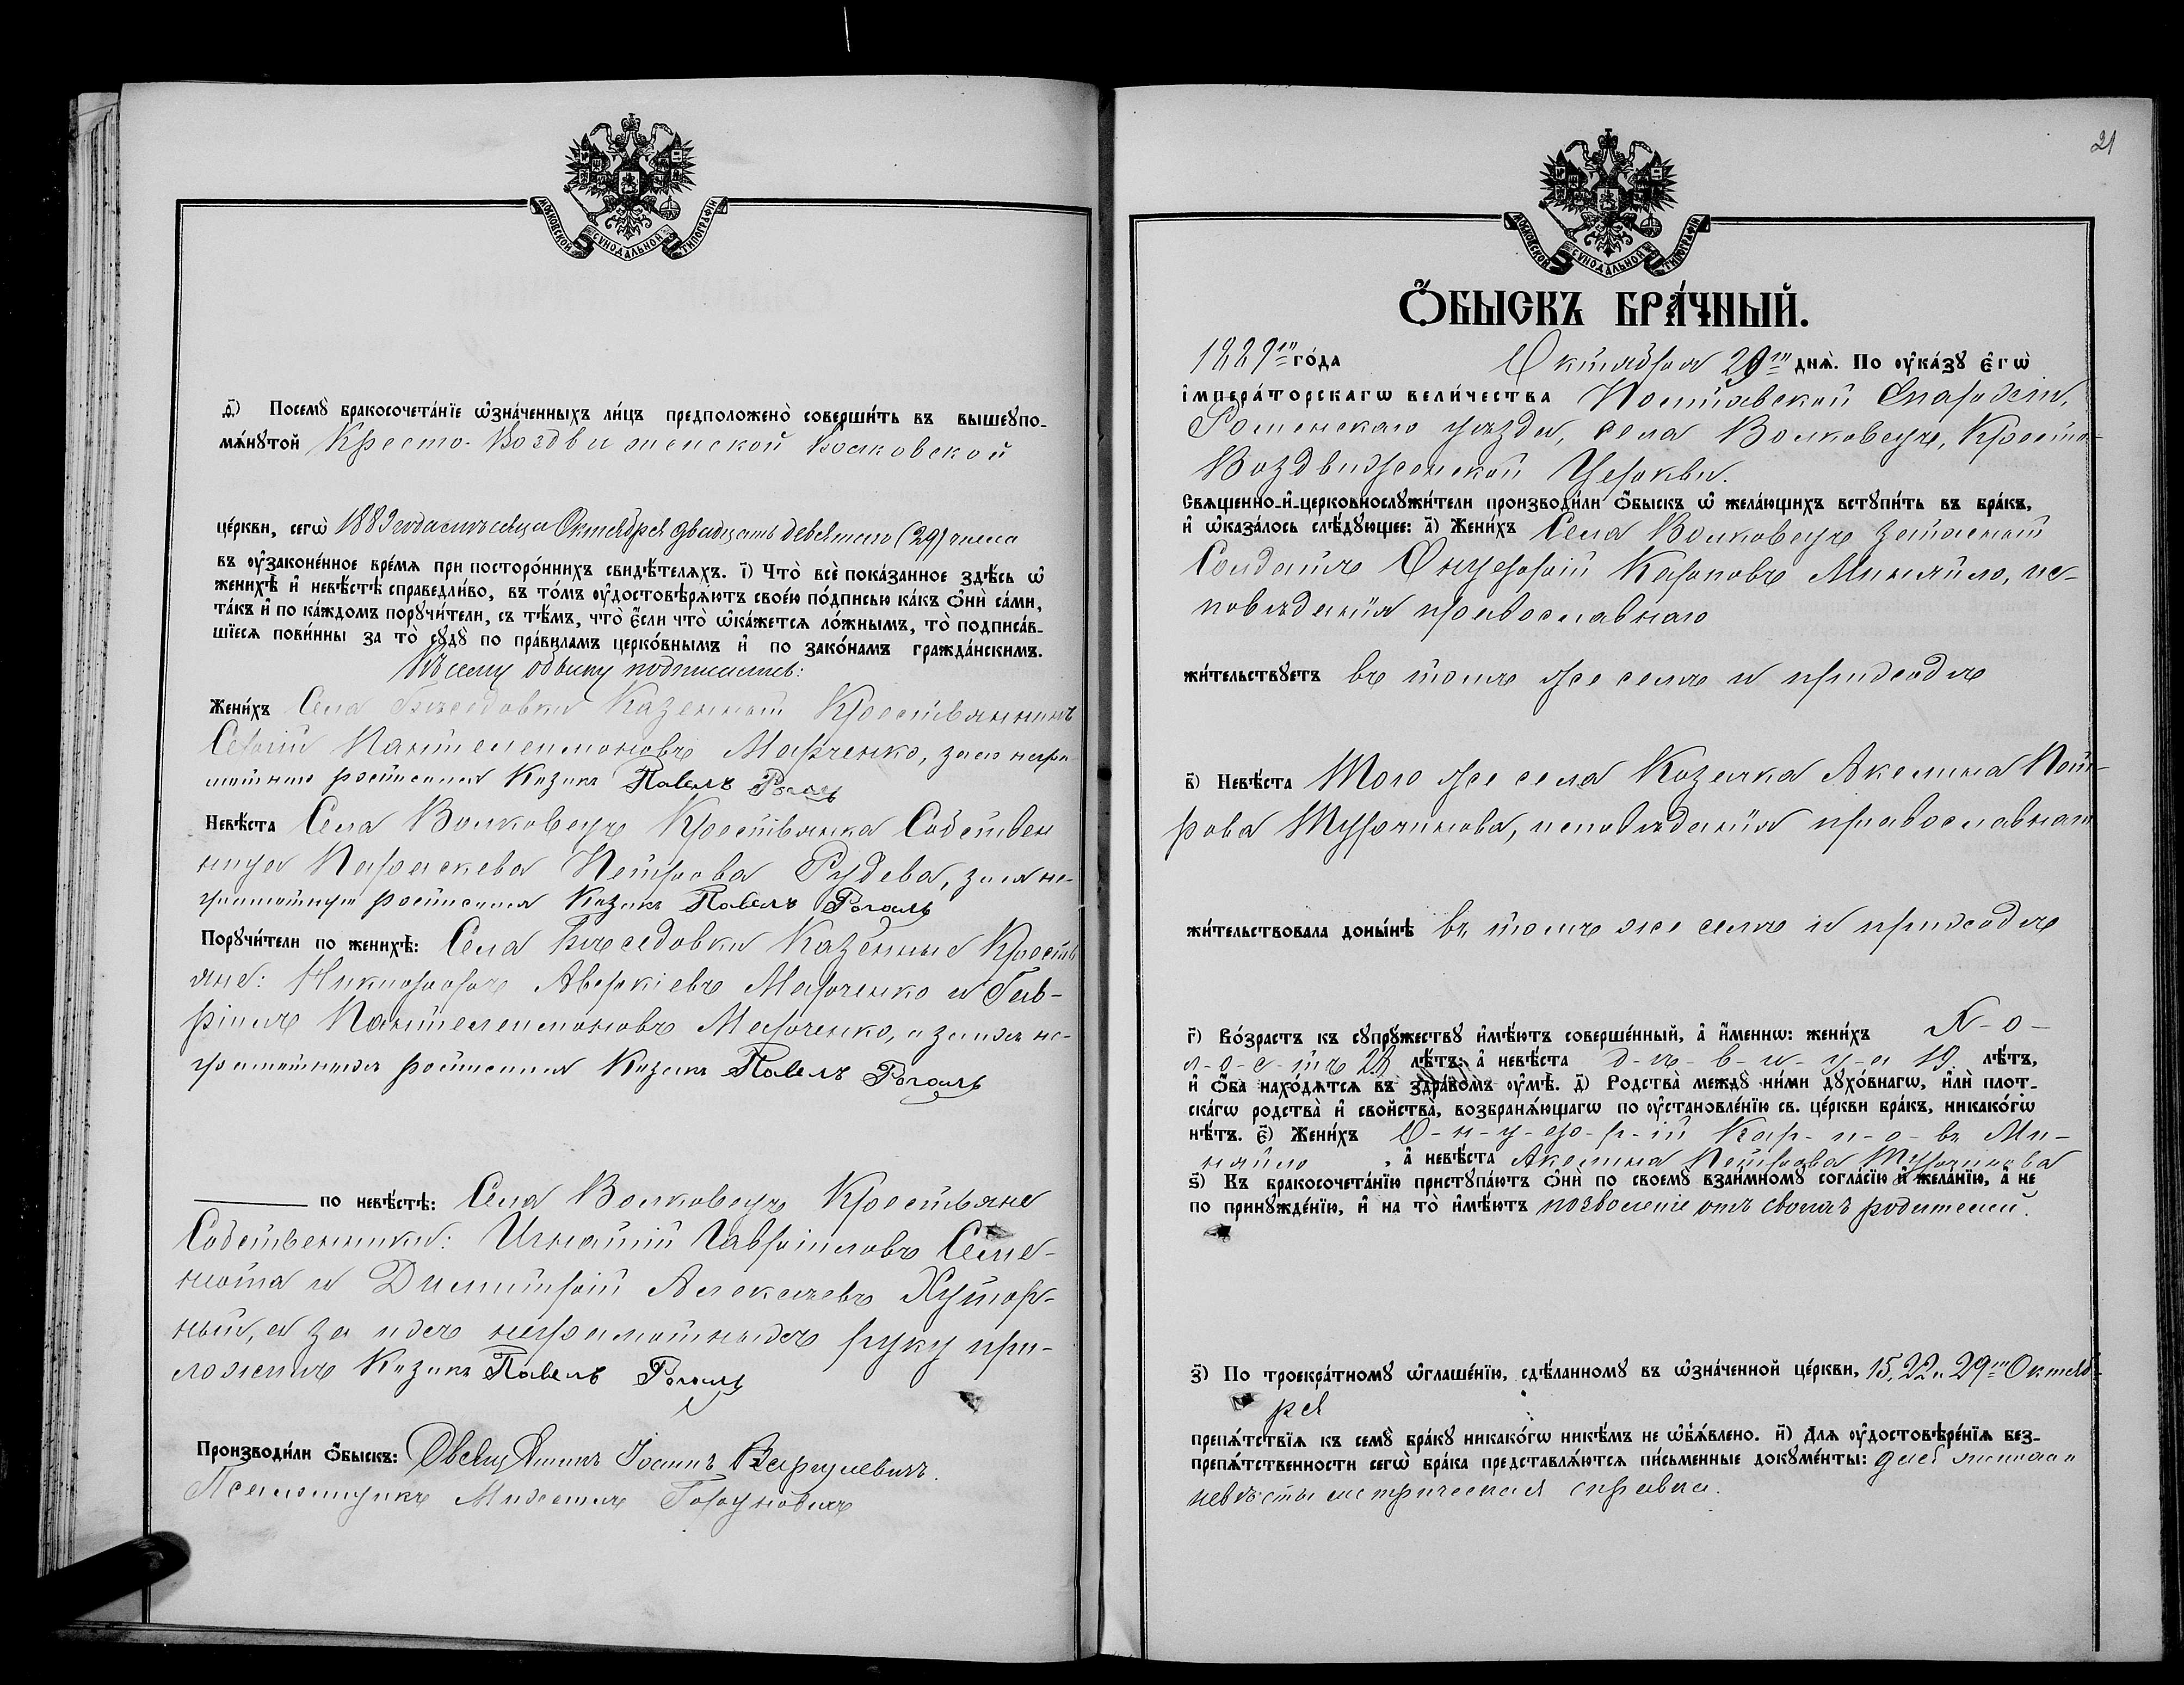 МОСКОВСКОЙ СѴНОДАЛЬНОЙ ТИПОГРАФІИ
Посемꙋ̀ бракосочета́нїе ѡ҆зна́ченныхъ ли́цъ предположено̀ соверши́ть въ вышеꙋпо-
мѧ́нꙋтой Кресто-Воздвиженской Волковской
це́ркви, сегѡ̀ 1889 года мѣсяца Октября двадцать девятаго (29) числа
въ ᲂу҆законе́нное вре́мѧ при посторо́ннихъ свидѣ́телѧхъ. і҃) Что̀ всѐ пока́занное здѣ́сь ѡ҆
женихѣ̀ и҆ невѣ́стѣ справедли́во, въ то́мъ ᲂу҆достовѣрѧ́ютъ свое́ю по́дписью ка́къ ѻ҆нѝ са́ми,
та́къ и҆ по ка́ждомъ порꙋчи́тели, съ тѣ́мъ, что̀ є҆́сли что̀ ѡ҆ка́жетсѧ ло́жнымъ, то̀ подписа́в-
шїесѧ пови́нны за то̀ сꙋдꙋ̀ по пра́виламъ церко́внымъ и҆ по зако́намъ гражда́нскимъ.
Къ сему обыску подписались:
Жени́хъ Села Бѣседовки Казенный Крестьянинъ
Сергій Пантелеимоновъ Марченко, за него негра
мотнаго росписался Казакъ Павелъ Рогаль
Невѣ́ста Села Волковецъ Крестьянка Собствен
ница Параскева Петрова Рудева, за нея не-
грамотную росписался Казакъ Павелъ Рогаль
Порꙋчи́тели по женихѣ̀: Села Бѣседовки Казенные Кресть
яне: Никифоръ Аверкіевъ Марченко и Гав-
ріилъ Пантелеимоновъ Марченко, а за ихъ не-
грамотныхъ росписался Казакъ Павелъ Рогаль
по невѣ́стѣ: Села Волковецъ Крестьяне
Собственники: Игнатій Гавріиловъ Семе-
нота и Димитрій Алексѣевъ Хутор-
ный, а за ихъ неграмотныхъ руку при-
ложилъ Казакъ Павелъ Рогаль
Производи́ли ѻ҆́быскъ: Іоаннъ
Псаломщикъ Михаилъ
21
МОСКОВСКОЙ СѴНОДАЛЬНОЙ ТИПОГРАФІИ
Ѻ҆́БЫСКЪ БРА́ЧНЫЙ.
1889го го́да Октября 29го днѧ̀. По ᲂу҆ка́зꙋ є҆гѡ̀
і҆мпера́торскагѡ вели́чества Полтавской Епархіи,
Роменскаго уѣзда, села Волковецъ, Кресто-
Воздвиженской Церкви.
Свѧщенно-и҆-церковнослꙋжи́тели производи́ли ѻ҆́быскъ ѡ҆ жела́ющихъ вступи́ть въ бра́къ,
и҆ ѡ҆каза́лось слѣ́дꙋющее: а҃) Жени́хъ Села Волковецъ запасный
Солдатъ Онуфрій Карповъ Миняйло, ис-
повѣданія православнаго
жи́тельствꙋетъ въ томъ же селѣ и приходѣ
в҃) Невѣ́ста Того же села Козачка Акелина Пет-
рова Шурчинова, исповѣданія православнаго
жи́тельствовала доны́нѣ въ томъ же селѣ и приходѣ
г҃) Во́зрастъ къ сꙋпрꙋ́жествꙋ и҆мѣ́ютъ соверше́нный, а҆ и҆́меннѡ: жени́хъ Х-о-
л-о-с-тъ 28 лѣ́тъ; а҆ невѣ́ста д-ѣ-в-и-ц-а 19 лѣ́тъ,
и҆ ѻ҆́ба нахо́дѧтсѧ въ здра́вомъ ᲂу҆мѣ̀. д҃) Родства̀ междꙋ̀ ни́ми дꙋхо́внагѡ, и҆лѝ плот-
ска́гѡ родства̀ и҆ свойства̀, возбранѧ́ющагѡ по ᲂу҆становле́нїю св. це́ркви бра́къ, никако́гѡ
нѣ́тъ. є҃) Жени́хъ О-н-у-ф-р-ій Кар-п-о-въ Ми-
няйло, а҆ невѣ́ста Акелина Петрова Шурчинова
ѕ҃) Къ бракосочета́нїю пристꙋпа́ютъ ѻ҆нѝ по своемꙋ̀ взаи́мномꙋ согла́сїю и҆ жела́нїю, а҆ не
по принꙋжде́нїю, и҆ на то̀ и҆мѣ́ютъ позволеніе отъ своихъ родителей.
з҃) По троекра́тномꙋ ѡ҆глаше́нїю, сдѣ́ланномꙋ въ ѡ҆зна́ченной це́ркви, 15, 22 и 29го Октяб-
ря
препѧ́тствїѧ къ семꙋ̀ бра́кꙋ никако́гѡ никѣ́мъ не ѡ҆б̾ѧ́влено. и҃) Для ᲂу҆достовѣре́нїѧ без-
препѧ́тственности сегѡ̀ бра́ка представлѧ́ютсѧ пи́сьменные докꙋме́нты: для жениха и
невѣсты метрическая справка.